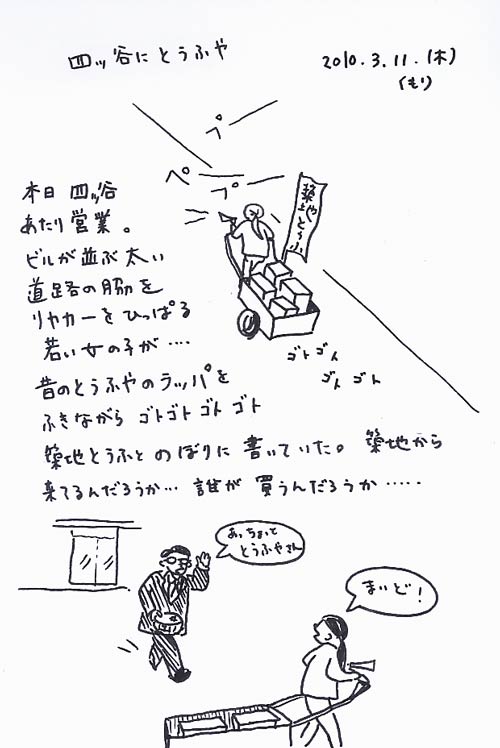 四ッ谷に とうふや
2010.3.11.(木)
(もり)
プー
ペー
プー
築地とうふ
本日 四ッ谷
あたり営業。
ビルが並ぶ太い
道路の脇を
リヤカーをひっぱる
若い女の子が‥‥
ゴトゴト
ゴト ゴト
昔のとうふやのラッパを
ふきながら ゴトゴト ゴト ゴト
築地とうふと のぼりに 書いていた。 築地から
来てるんだろうか… 誰が 買うんだろうか‥‥‥
あ、ちょっと
とうふやさん
まいど！